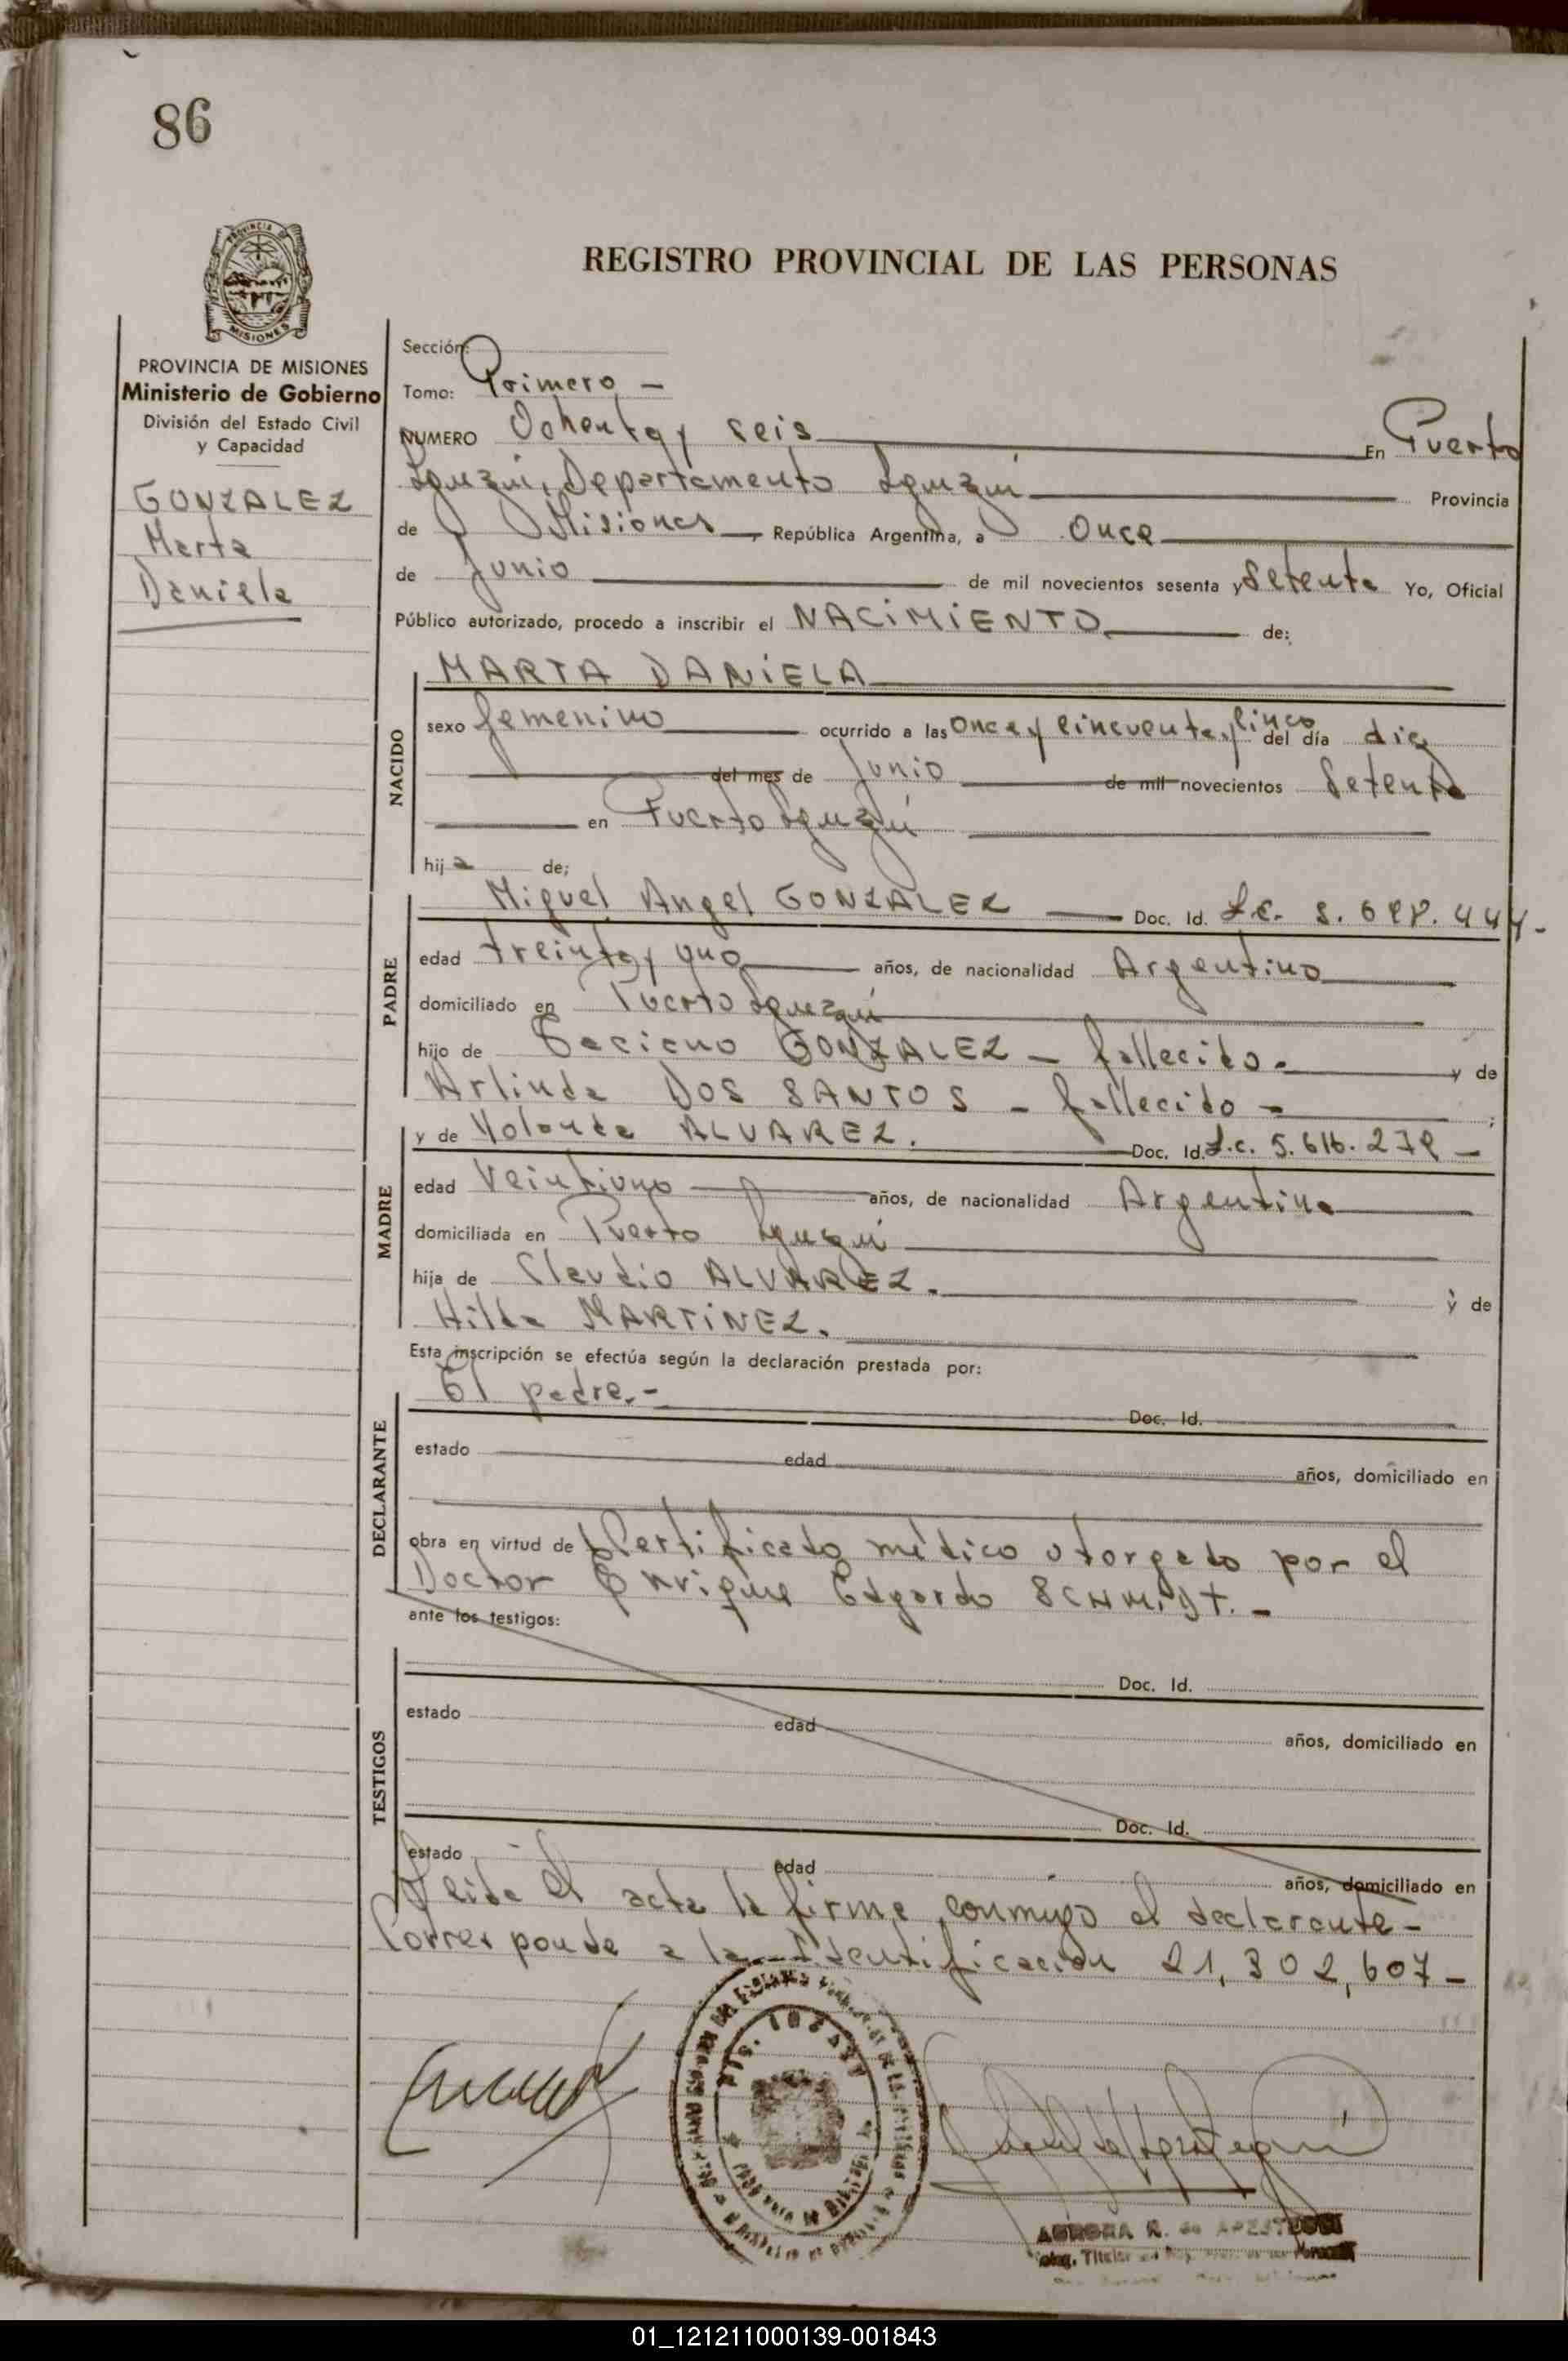 86
PROVINCIA DE
MISIONES
REGISTRO PROVINCIAL DE LAS PERSONAS
PROVINCIA DE MISIONES
Ministerio de Gobierno
División del Estado Civil
y Capacidad
GONZALEZ
Marta
Daniela
Sección:
Tomo: Primero -
NUMERO Ochenta y seis En Puerto
Iguazú, Departamento Iguazú Provincia
de Misiones República Argentina, a once
de Junio de mil novecientos sesenta y Setenta Yo, Oficial
Público autorizado, procedo a inscribir el NACIMIENTO de:
NACIDO
MARTA DANIELA
sexo femenino ocurrido a las once y cincuenta y cinco del día diez
del mes de Junio de mil novecientos Setenta
en Puerto Iguazú
hija de;
PADRE
Miguel Angel GONZALEZ Doc. Id.
edad treinta y uno años, de nacionalidad Argentino
domiciliado en Puerto Iguazú
hijo de GONZALEZ - fallecido. y de
Arlinda DOS SANTOS - fallecido - ;
MADRE
y de Yolanda ALVAREZ. Doc. Id. L.C.
edad Veintiuno años, de nacionalidad Argentina
domiciliada en Puerto Iguazú
hija de Claudio ALVAREZ. y de
Hilda MARTINEZ.
Esta inscripción se efectúa según la declaración prestada por:
DECLARANTE
El padre.-
Doc. Id.
estado edad años, domiciliado en
obra en virtud de Certificado médico otorgado por el
Doctor Enrique Edgardo SCHMIDT. -
ante los testigos:
TESTIGOS
Doc. Id.
estado edad años, domiciliado en
Doc. Id.
estado edad años, domiciliado en
Leida el acta la firma conmigo el declarante -
Corresponde a la Identificación 21,302,607 -
AURORA R. de
01_121211000139-001843